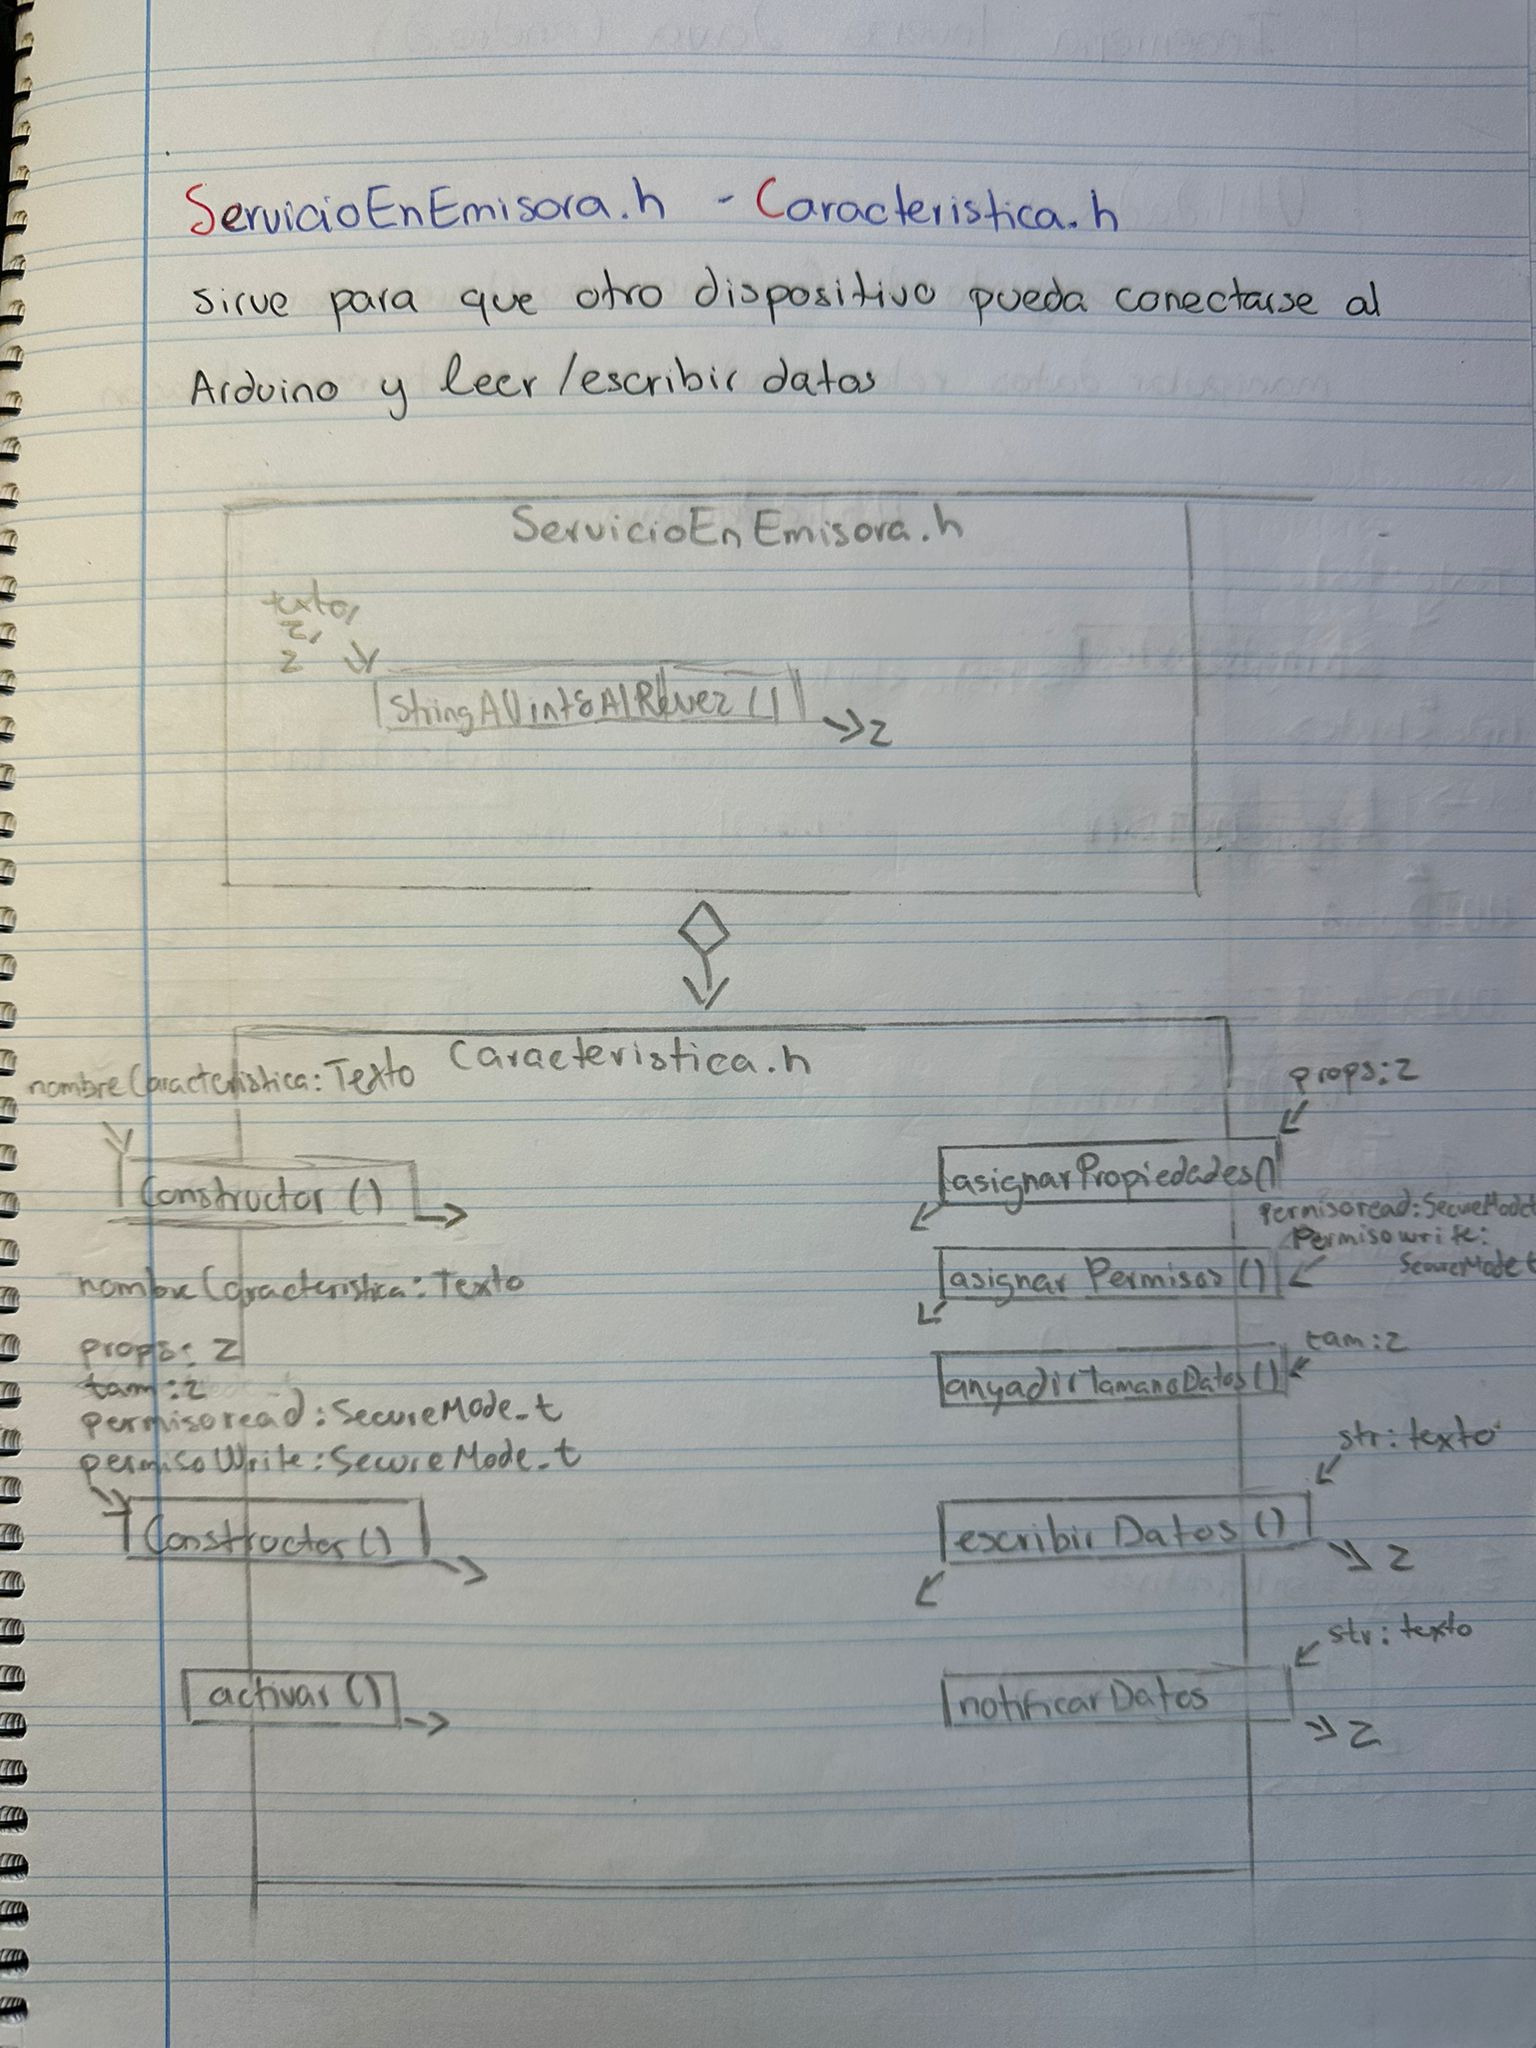 ServicioEnEmisora.h - Caracteristica.h
sirve para que otro dispositivo pueda conectarse al
Arduino y leer/escribir datos
ServicioEnEmisora.h
texto,
Z,
Z
StringAUint8AlRevez()
Z
Caracteristica.h
nombreCaracteristica: Texto
Constructor ()
nombreCaracteristica: Texto
props: Z
tam: Z
permisoread: SecureMode_t
permisoWrite: SecureMode_t
Constructor()
activar ()
props: Z
asignarPropiedades()
permisoread: SecureModet
Permisowrite:
SecureMode t
asignar Permisos ()
tam: Z
anyadirTamanoDatos()
str: texto
escribir Datos ()
Z
str: texto
notificarDatos
Z